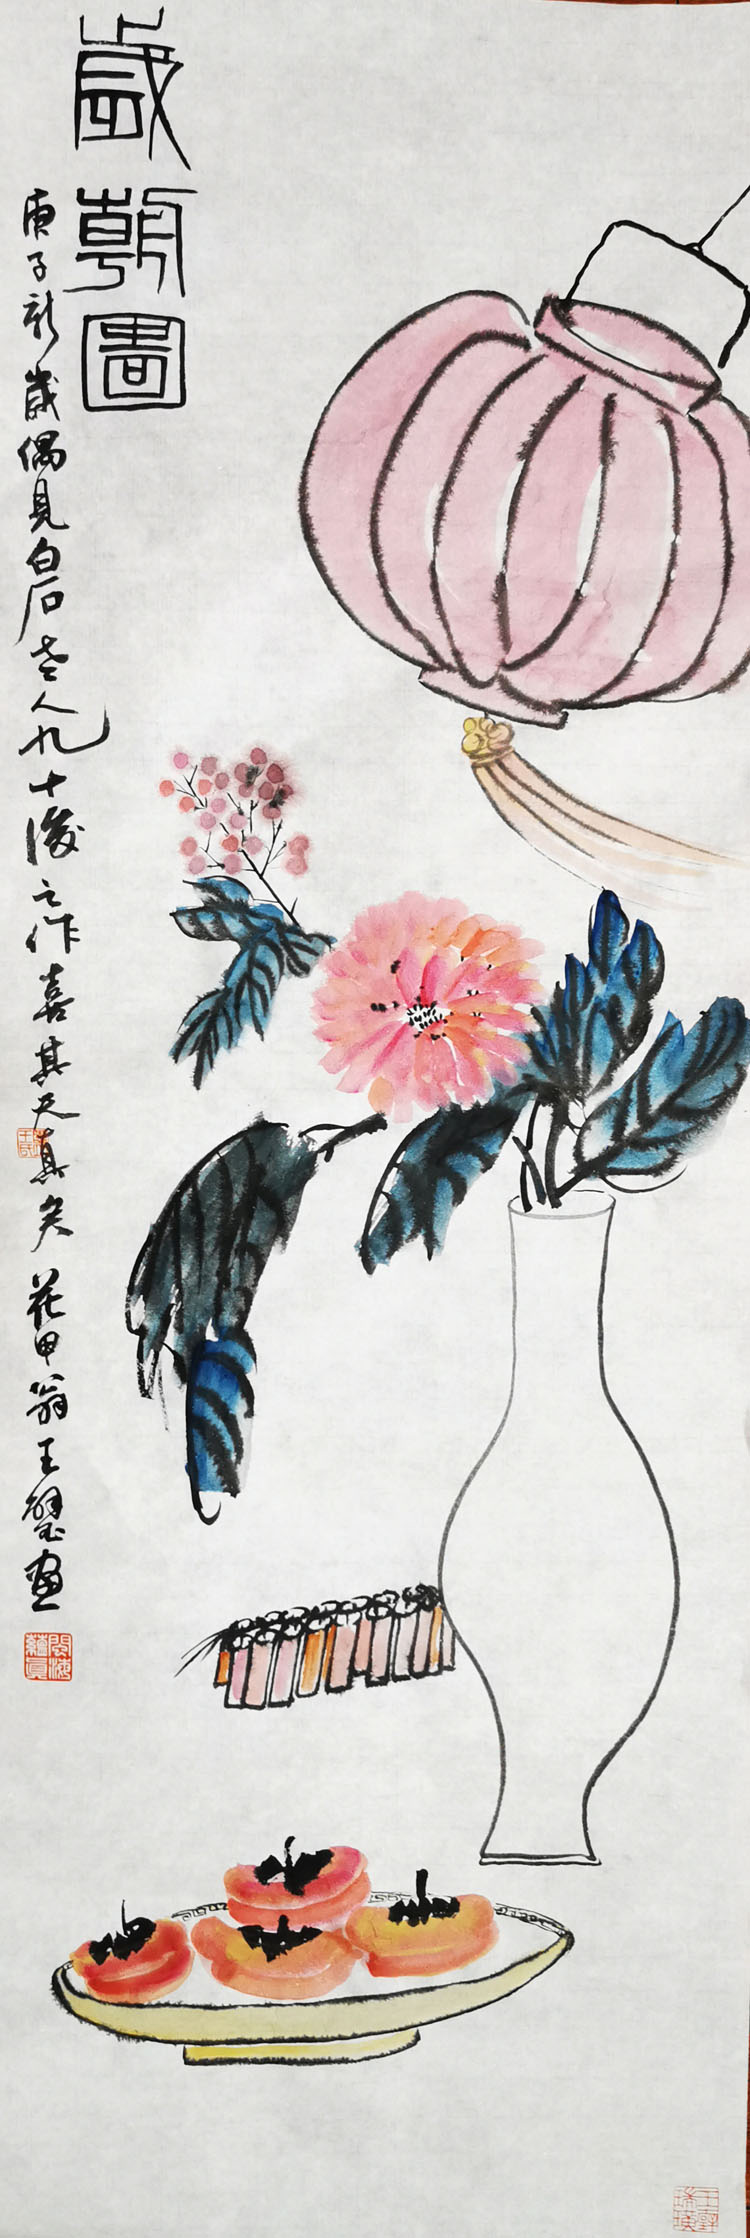 歲朝圖
庚子新歲偶見白石老人九十後之作喜其天真矣花甲翁王璧畫